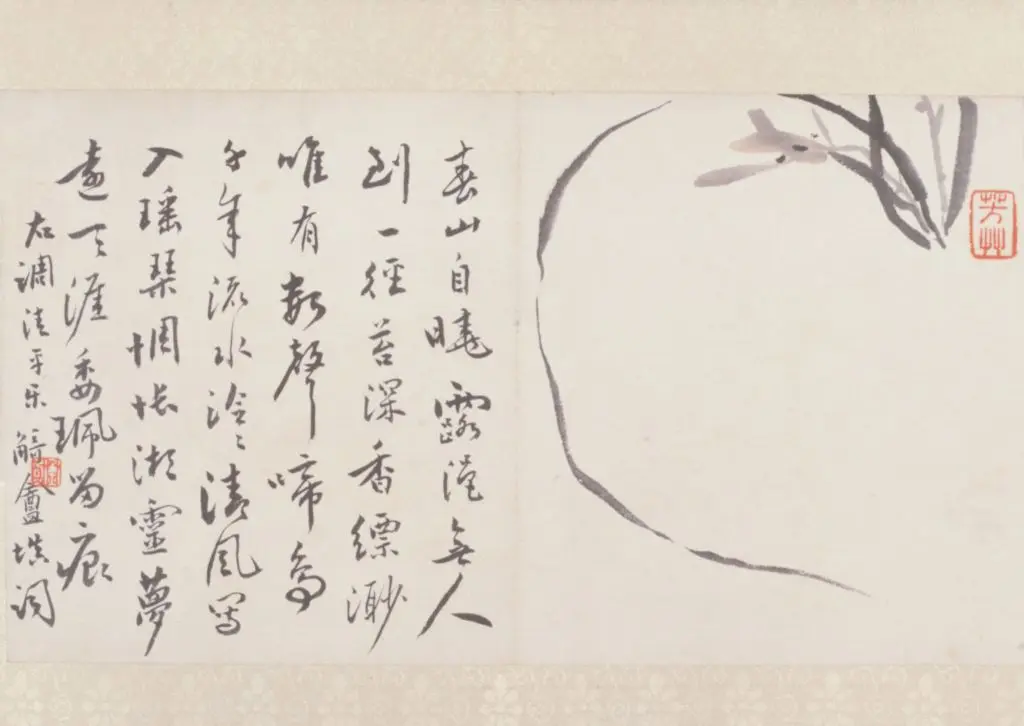 芳艸
春山自曉露溼無人
到一徑苔深香縹緲
唯有數聲啼鳥
千年流水泠〻清風寫
入瑤琴惆悵湘靈夢
遠天涯委珮留痕
右調清平乐 觭盦填词